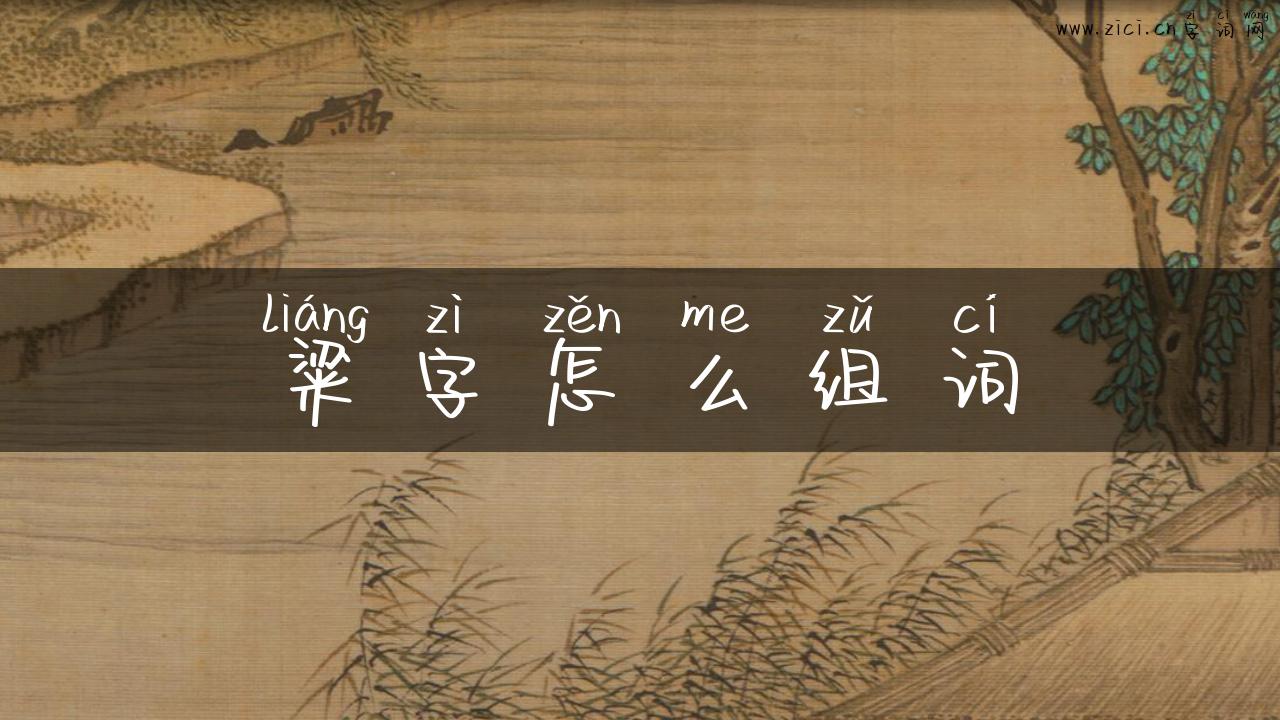 zì cí wǎng
www.zici.cn字词网
liáng zì zěn me zǔ cí
粱字怎么组词